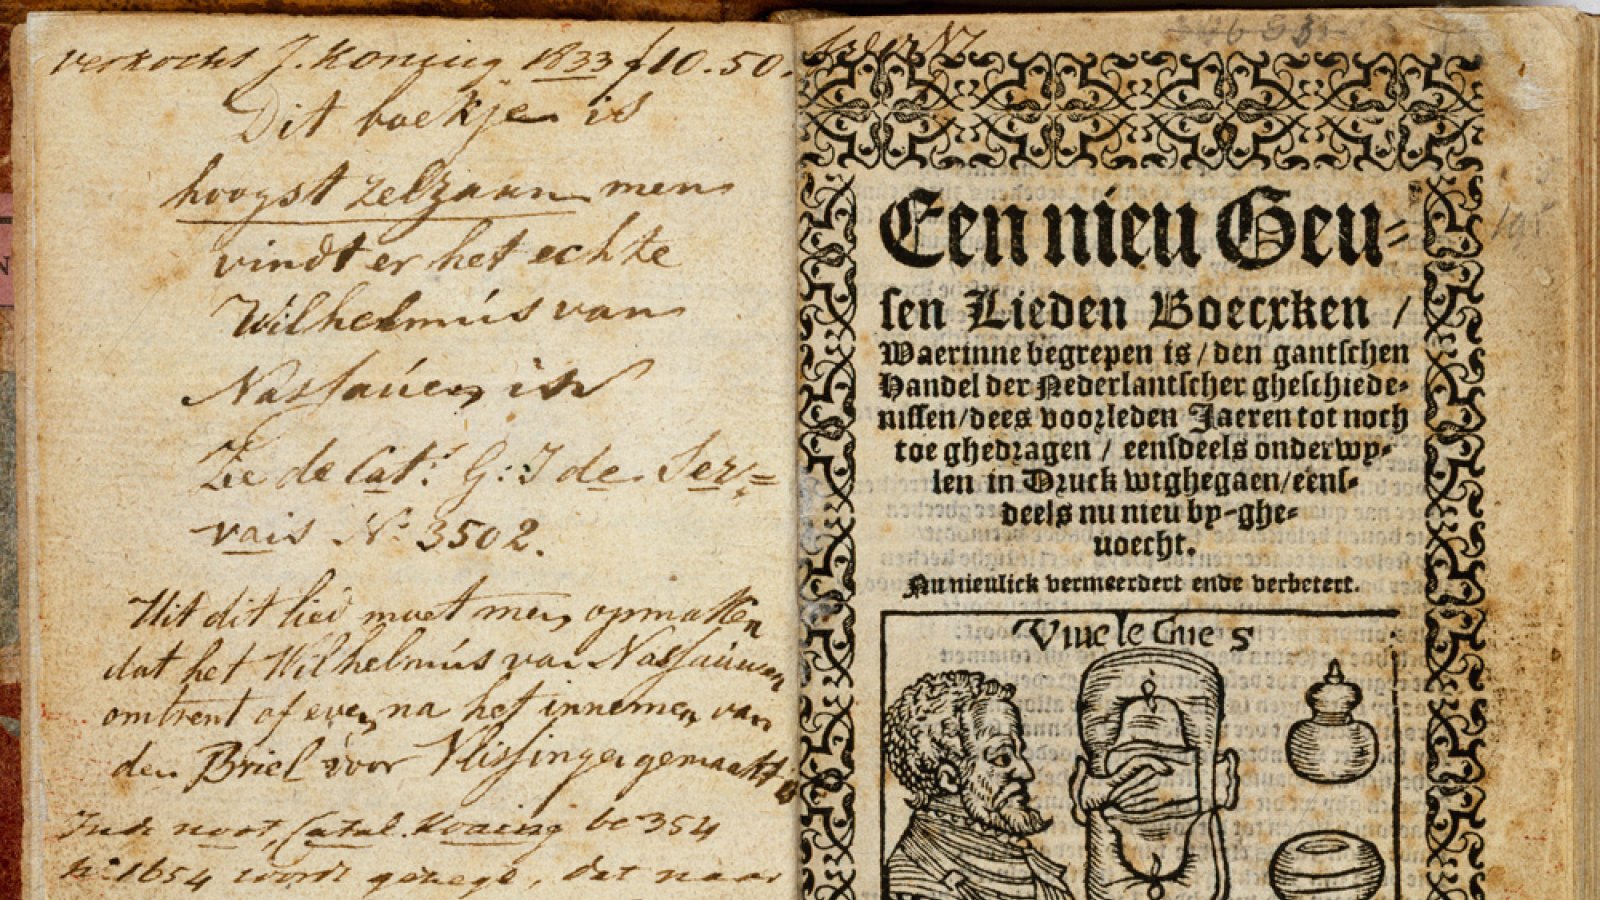 verkocht J. Koning 1833 f 10.50.
Dit boekje is
hoogst zelzaam men
vindt er het echte
Wilhelmus van
Nassauen in
Zie de Cat. G: J de Ser=
vais N.o 3502.
Uit dit lied moet men opmaken
dat het Wilhelmus van Nassauwen
omtrent of even na het innemen van
den Briel voor Vlissingen gemaakt is
In de noot, Catal. Koning bl 354
N.o 1654 wordt gezegd, dat naar
Een nieu Geu=
sen Lieden Boecxken /
Waerinne begrepen is / den gantschen
Handel der Nederlantscher gheschiede-
nissen / dees voorleden Jaeren tot noch
toe ghedragen / eensdeels onderwy-
len in Druck wtghegaen / eens-
deels nu nieu by-ghe-
uoecht.
Nu nieulick vermeerdert ende verbetert.
Viue le Gues